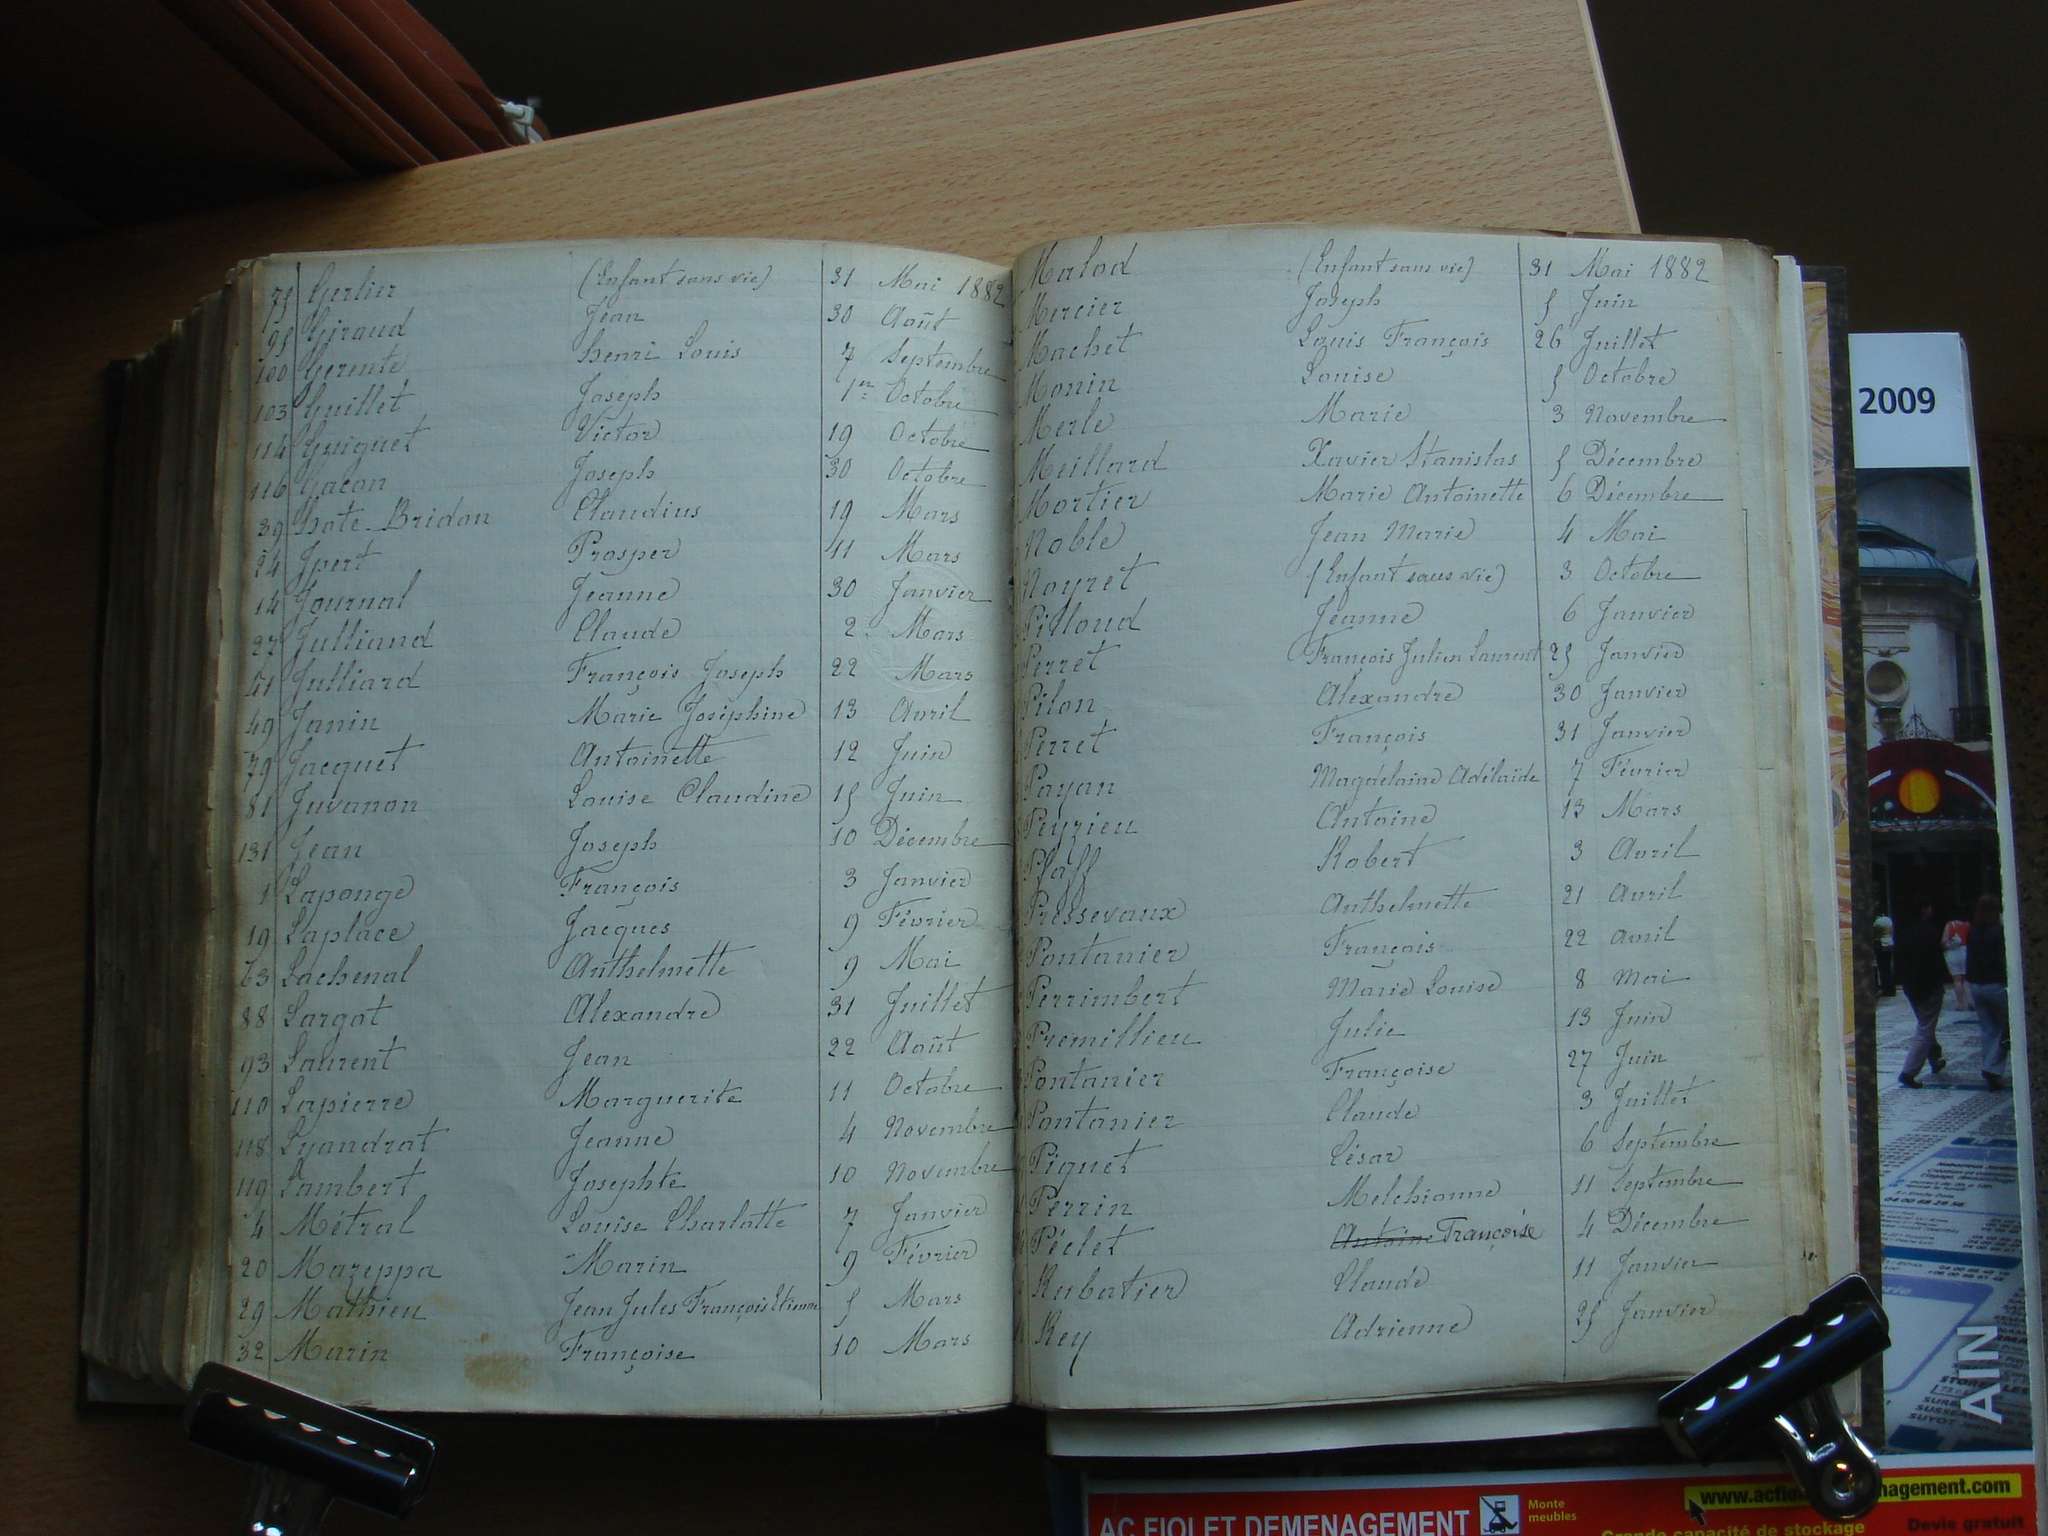 75 Gerlier (Enfant sans vie) 31 Mai 1882
95 Giraud Jean 30 Août
100 Gerente Henri Louis 7 Septembre
103 Guillet Joseph 1er Octobre
114 Guiguet Victor 19 Octobre
116 Gacon Joseph 30 Octobre
39 Hote-Bridon Claudius 19 Mars
34 Jpert Prosper 11 Mars
14 Journal Jeanne 30 Janvier
27 Julliand Claude 2 Mars
41 Julliard François Joseph 22 Mars
49 Janin Marie Joséphine 13 Avril
79 Jacquet Antoinette 12 Juin
81 Juvanon Louise Claudine 15 Juin
131 Jean Joseph 10 Décembre
1 Laponge François 3 Janvier
19 Laplace Jacques 9 Février
63 Lachenal Anthelmette 9 Mai
88 Largot Alexandre 31 Juillet
93 Laurent Jean 22 Août
110 Lapierre Marguerite 11 Octobre
118 Lyandrat Jeanne 4 Novembre
119 Lambert Josephte 10 Novembre
4 Métral Louise Charlotte 7 Janvier
20 Mazeppa Marin 9 Février
29 Mathieu Jean Jules François Etienne 5 Mars
32 Marin Françoise 10 Mars
Malod (Enfant sans vie) 31 Mai 1882
Mercier Joseph 5 Juin
Machet Louis François 26 Juillet
Monin Louise 5 Octobre
Merle Marie 3 Novembre
Meillard Xavier Stanislas 5 Décembre
Mortier Marie Antoinette 6 Décembre
Noble Jean Marie 4 Mai
Noyret (Enfant sans vie) 3 Octobre
Pilloud Jeanne 6 Janvier
Perret François Julien Laurent 25 Janvier
Pilon Alexandre 30 Janvier
Perret François 31 Janvier
Payan Magdelaine Adélaïde 7 Février
Peyrieu Antoine 13 Mars
Pfaff Robert 3 Avril
Pressevaux Anthelmette 21 Avril
Pontanier François 22 Avril
Perrimbert Marie Louise 8 Mai
Premillieu Julie 13 Juin
Pontanier Françoise 27 Juin
Pontanier Claude 3 Juillet
Piguet César 6 Septembre
Perrin Melchionne 11 Septembre
Péclet Antoine Françoise 4 Décembre
Rubatier Claude 11 Janvier
Rey Adrienne 25 Janvier
2009
AIN
AC FIOLET DEMENAGEMENT
Monte
meubles
Grande capacité de stockage
Devis gratuit